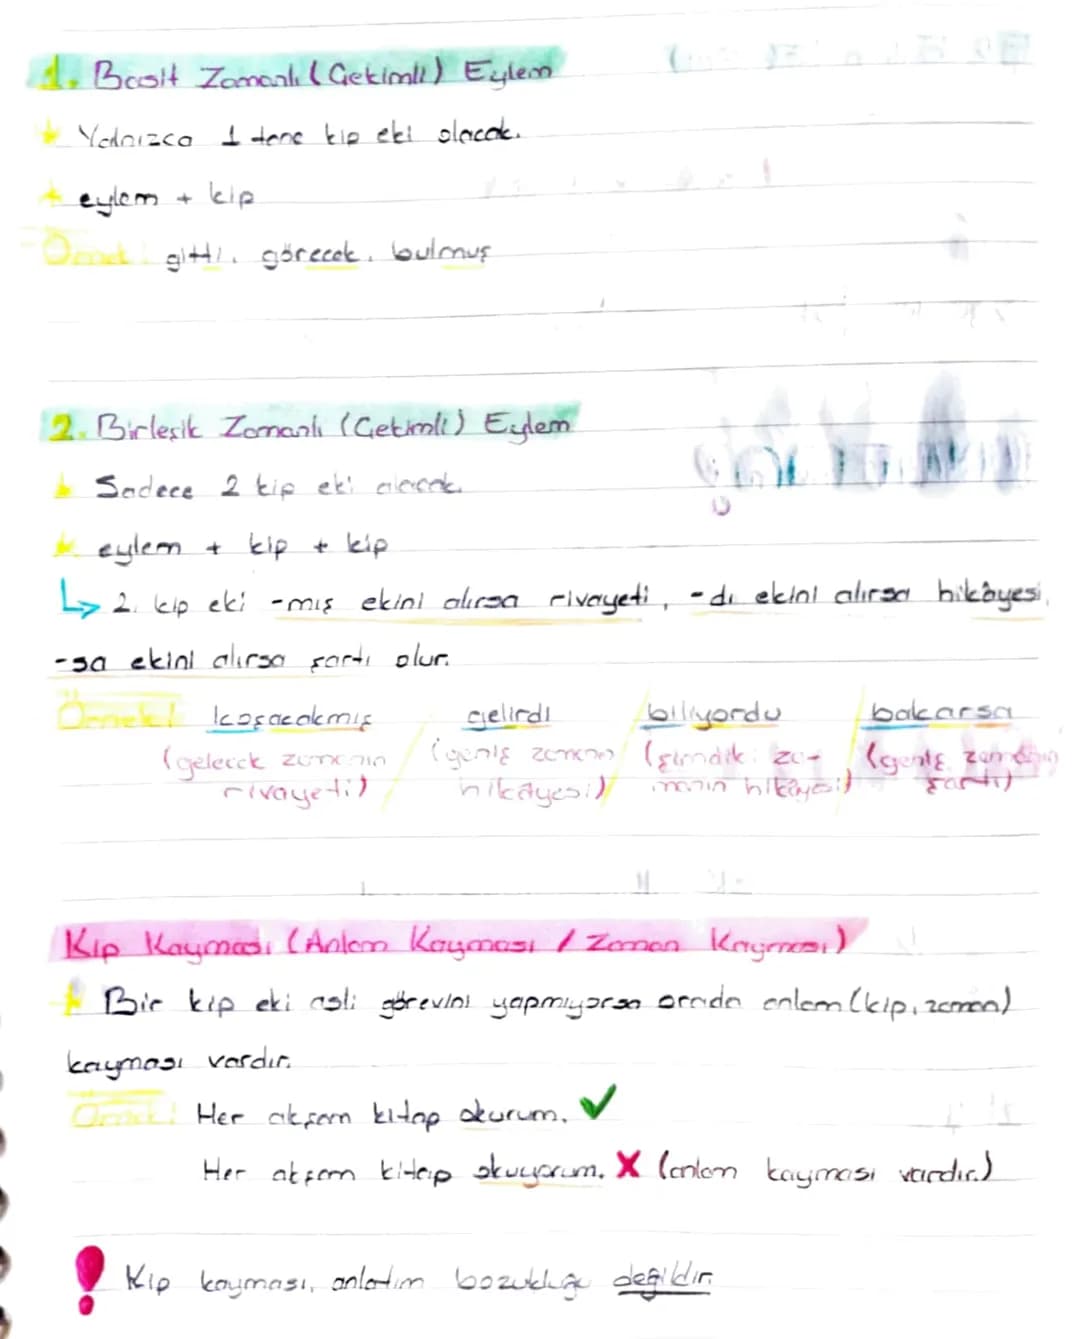 1. Basit Zamanlı (Çekimli) Eylem
Yalnızca 1 tane kip eki olacak.
eylem + kip
Örnek! gitti, görecek, bulmuş
2. Birleşik Zamanlı (Çekimli) Eylem
Sadece 2 kip eki alacak.
eylem + kip + kip
↳ 2. kip eki -mış ekini alırsa rivayeti, -dı ekini alırsa hikâyesi,
-sa ekini alırsa şartı olur.
Örnek! koşacakmış / gelirdi / biliyordu / bakarsa
(gelecek zamanın / (geniş zaman / (şimdiki za- / (geniş zamanın
rivayeti) hikâyesi) manın hikâyesi) şartı)
Kip Kayması (Anlam Kayması / Zaman Kayması)
Bir kip eki asli görevini yapmıyorsa orada anlam (kip, zaman)
kayması vardır.
Örnek! Her akşam kitap okurum. ✔
Her akşam kitap okuyorum. X (anlam kayması vardır.)
! Kip kayması, anlatım bozukluğu değildir.